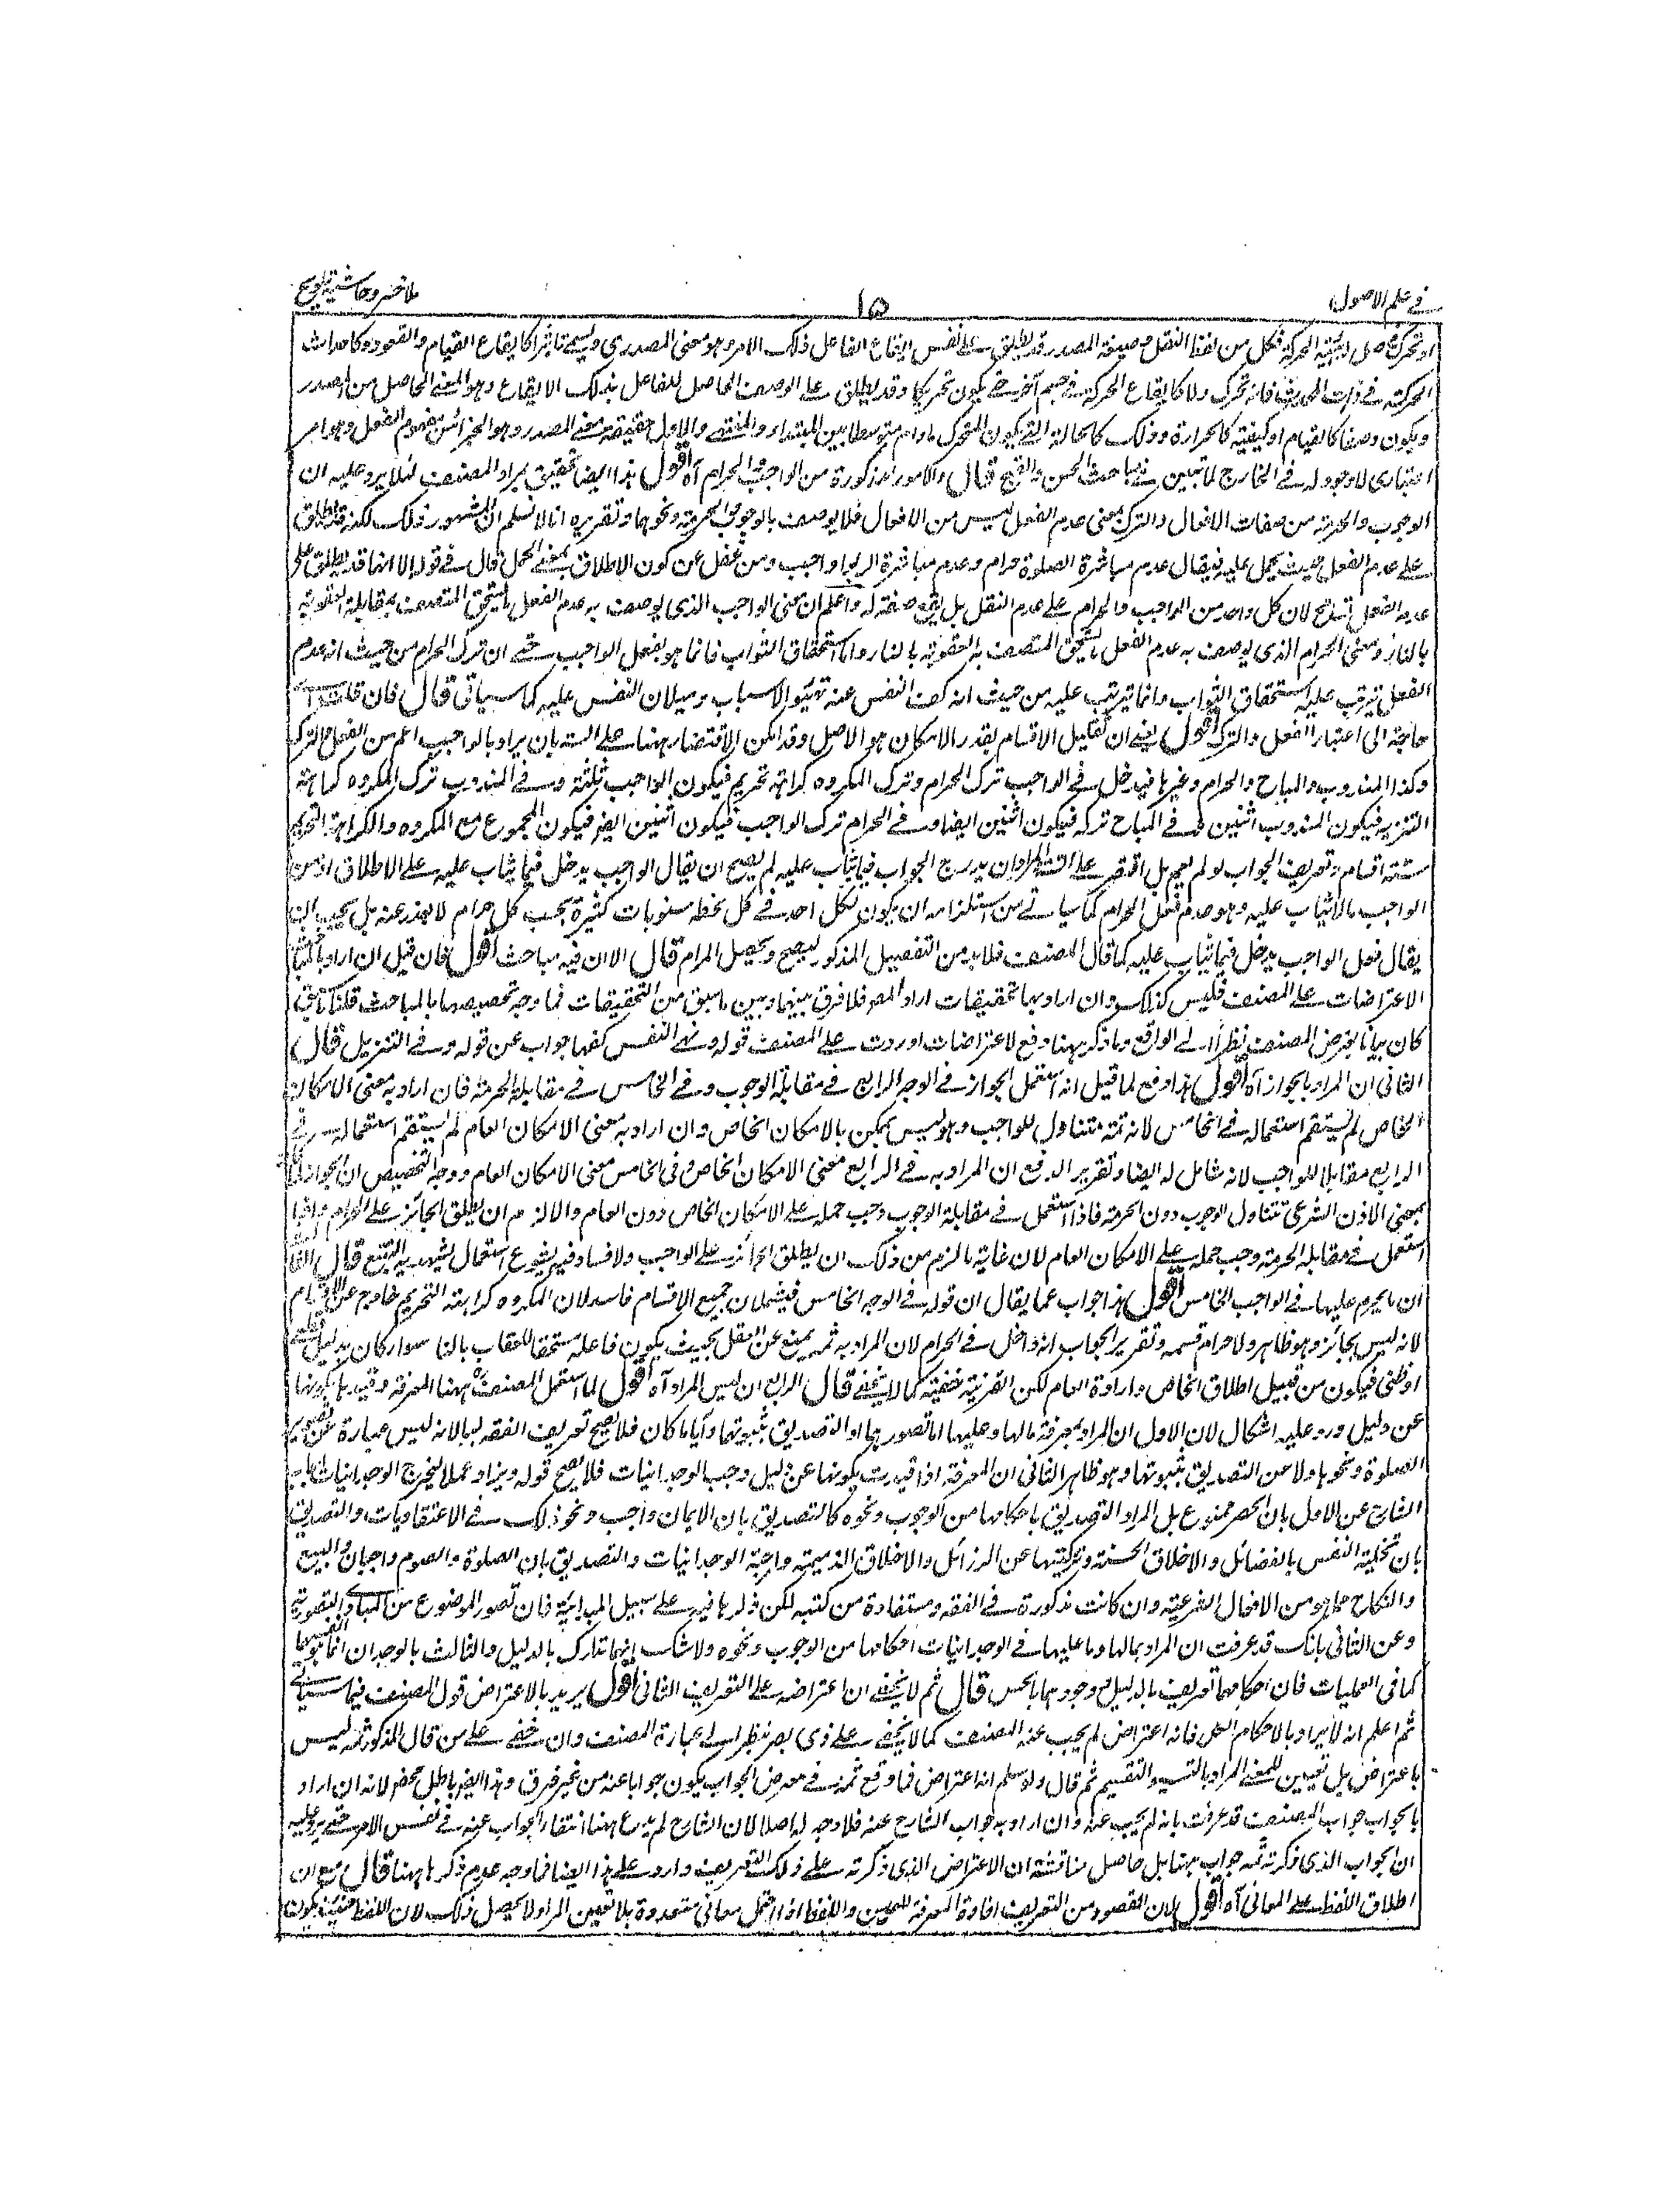 في علم الاصول
١٥
ملا خسرو حاشية تلويح
او تحرك حصل له هيئة الحركة فكل من لفظ الفعل و صيغة المصدر قد يطلق على نفس ايقاع الفاعل ذلك الامر وهو معنى المصدري ويسمى تاثيرا كايقاع القيام والقعود وكاحداث
الحركة في ذات المحرك فانه تحرك ولا كايقاع الحركة في جسم آخر حتى يكون تحريكا وقد يطلق على الوصف الحاصل للفاعل بذلك الايقاع وهو المعنى الحاصل من المصدر
ويكون وصفا كالقيام او كيفية كالحرارة وذلك كالحالة التي يكون المتحرك مادام متوسطا بين المبتداء والمنتهى والاول حقيقة معنى المصدر وهو الجزء من مفهوم الفعل وهو امر
اعتباري لا وجود له في الخارج لما تبين في مباحث الحسن والقبح قال والامور المذكورة من الواجب والحرام آه اقول هذا ايضا تحقيق لمراد المصنف لئلا يرد عليه ان
الوجوب والحرمة من صفات الافعال والترك بمعنى عدم الفعل ليس من الافعال فلا يوصف بالوجوب والحرمة ونحوهما وتقريره انا لا نسلم ان المشهور ذلك لكنه قد يطلق
على عدم الفعل بحيث يحمل عليه فيقال عدم مباشرة الصلوة حرام وعدم مباشرة الربوا واجب ومن غفل عن كون الاطلاق بمعنى الحمل قال في قوله الا انها قد يطلق على
عدم الفعل تسامح لان كل واحد من الواجب والحرام على عدم الفعل بل يقع صفة له واعلم ان معنى الواجب الذي يوصف به عدم الفعل ما يستحق المتصف بمقابلة العقوبة
بالنار ومعنى الحرام الذي يوصف به عدم الفعل ما يستحق المتصف به العقوبة بالنار واما استحقاق الثواب فانما هو بفعل الواجب حتى ان ترك الحرام من حيث انه عدم
الفعل لا يترتب عليه استحقاق الثواب وانما يترتب عليه من حيث انه كف النفس عنه تهيؤ الاسباب وميلان النفس عليه كما سياتي قال فان قلت لا
حاجة الى اعتبار الفعل والترك اقول يعني ان تقليل الاقسام بقدر الامكان هو الاصل وقد امكن الاقتصار ههنا على الستة بان يراد بالواجب اعم من الفعل والترك
وكذا المندوب والمباح والحرام وغيرها فيدخل في الواجب ترك الحرام وترك المكروه كراهة تحريم فيكون الواجب ثلثة وفي المندوب ترك المكروه كراهة
التنزيه فيكون المندوب اثنين وفي المباح تركه فيكون اثنين ايضا وفي الحرام ترك الواجب فيكون اثنين ايضا فيكون المجموع مع المكروه والكراهة التحريم
ستة اقسام وتعريف الجواب لو لم يعمم بل اقتصر على الستة المراد ان يدرج الجواب فيما يثاب عليه لم يصح ان يقال الواجب يدخل فيما يثاب عليه على الاطلاق اذ من
الواجب ما لا يثاب عليه وهو عدم فعل الحرام كما سياتي من استلزامه ان يكون لكل احد في كل لحظة مثوبات كثيرة بحسب كل حرام لا يصدر عنه بل يجب ان
يقال فعل الواجب يدخل فيما يثاب عليه كما قال المصنف فلا بد من التفصيل المذكور ليصح ويحصل المرام قال الا ان فيه مباحث اقول فان قيل ان اراد بالمباحث
الاعتراضات على المصنف فليس كذلك وان اراد بها تحقيقات اراد المص فلا فرق بينها وبين ما سبق من التحقيقات فما وجه تخصيصها بالمباحث قلنا ما سبق
كان بيانا لغرض المصنف نظرا الى الواقع وما ذكر ههنا دفع لاعتراضات اوردت على المصنف قوله ونهى النفس كفها جواب عن قوله وفي التنزيل قال
الثاني ان المراد بالجواز آه اقول هذا دفع لما قيل انه استعمل الجواز في الوجه الرابع في مقابلة الوجوب وفي الخامس في مقابلة الحرمة فان اراد به معنى الامكان
الخاص لم يستقم استعماله في الخامس لانه ثمة متناول للواجب وهو ليس بممكن بالامكان الخاص وان اراد به معنى الامكان العام لم يستقم استعماله في
الرابع مقابلا للواجب لانه شامل له ايضا وتقرير الدفع ان المراد به في الرابع معنى الامكان الخاص وفي الخامس معنى الامكان العام ووجه التخصيص ان الجواز لما
بمعنى الاذن الشرعي تتناول الوجوب دون الحرمة فاذا استعمل في مقابلة الوجوب وجب حمله على الامكان الخاص دون العام والا لزم ان يطلق الجائز على الحرام واذا
استعمل في مقابلة الحرمة وجب حمله على الامكان العام لان غاية ما لزم من ذلك ان يطلق الجائز على الواجب ولا فساد فيه لشيوع استعمال يشهد به التتبع قال الثالث
ان ما يحرم عليها في الواجب الخامس اقول هذا جواب عما يقال ان قوله في الوجه الخامس فيشملان جميع الاقسام فاسد لان المكروه كراهة التحريم خارج عن الاقسام
لانه ليس بجائز وهو ظاهر ولا حرام قسمه وتقرير الجواب انه داخل في الحرام لان المراد به ثمة يمنع عن الفعل بحيث يكون فاعله مستحقا للعقاب بالنار سواء كان بدليل قطعي
او ظني فيكون من قبيل اطلاق الخاص وارادة العام لكن القرينة خفية كما لا يخفى قال الرابع ان ليس المراد آه اقول لما استعمل المصنف ههنا المعرفة وقيدها بكونها
عن دليل ورد عليه اشكال لان الاول ان المراد بمعرفة مالها وعليها اما تصورهما او التصديق بثبوتهما وأيا ما كان فلا يصح تعريف الفقه لها لانه ليس عبارة عن تصور
الصلوة ونحوها ولا عن التصديق بثبوتها وهو ظاهر الثاني ان المعرفة اذا قيدت بكونها عن دليل وجب الوجدانيات فلا يصح قوله ويزاد عملا ليخرج الوجدانيات اجاب
الشارح عن الاول بان الحصر ممنوع بل المراد التصديق باحكامها من الوجوب ونحوه كالتصديق بان الايمان واجب ونحو ذلك في الاعتقاديات والتصديق
بان تحلية النفس بالفضائل والاخلاق الحسنة وتزكيتها عن الرزائل والاخلاق الذميمة واجبة الوجدانيات والتصديق بان الصلوة والصوم واجبان والبيع
والنكاح مما هو من الافعال الشرعية وان كانت مذكورة في الفقه ومستفادة من كتبه لكن ذكرها فيه على سبيل المبدائية فان تصور الموضوع من المبادي التصورية
وعن الثاني بانك قد عرفت ان المراد بمالها وما عليها في الوجدانيات احكامها من الوجوب ونحوه ولا شك انها تدارك بالدليل والثالث بالوجدان انما هو انفسها
كما في العمليات فان احكامها تعريف بالدليل ووجودها بالحس قال ثم لا يخفى ان اعتراضه على التعريف الثاني اقول يريد بالاعتراض قول المصنف فيما سياتي
ثم اعلم انه لا يراد بالاحكام الكل فانه اعتراض لم يجب عنه المصنف كما لا يخفى على ذي بصر نظر الى عبارة المصنف وان خفي على من قال المذكور ثمه ليس
باعتراض بل تعيين للمعنى المراد بالتسيير والتقسيم ثم قال ولو سلم انه اعتراض فما وقع ثمة في معرض الجواب يكون جوابا عنه من غير فرق وهذا ايضا باطل محض لانه ان اراد
بالجواب جواب المصنف قد عرفت بانه لم يجب عنه وان اراد به جواب الشارح عنه فلا وجه له اصلا لان الشارح لم يدع ههنا انتفاء الجواب عنه في نفس الامر حتى يرد عليه
ان الجواب الذي ذكرته ثمه جواب ههنا بل حاصل مناقشته ان الاعتراض الذي ذكرته على ذلك التعريف وارد على هذا ايضا فما وجه عدم ذكرها ههنا قال مع ان
اطلاق اللفظ على المعاني آه اقول لان المقصود من التعريف افادة المعرفة للمعين واللفظ اذا احتمل معاني متعددة بلا تعيين المراد لا يحصل ذلك لان اللفظ حينئذ يكون